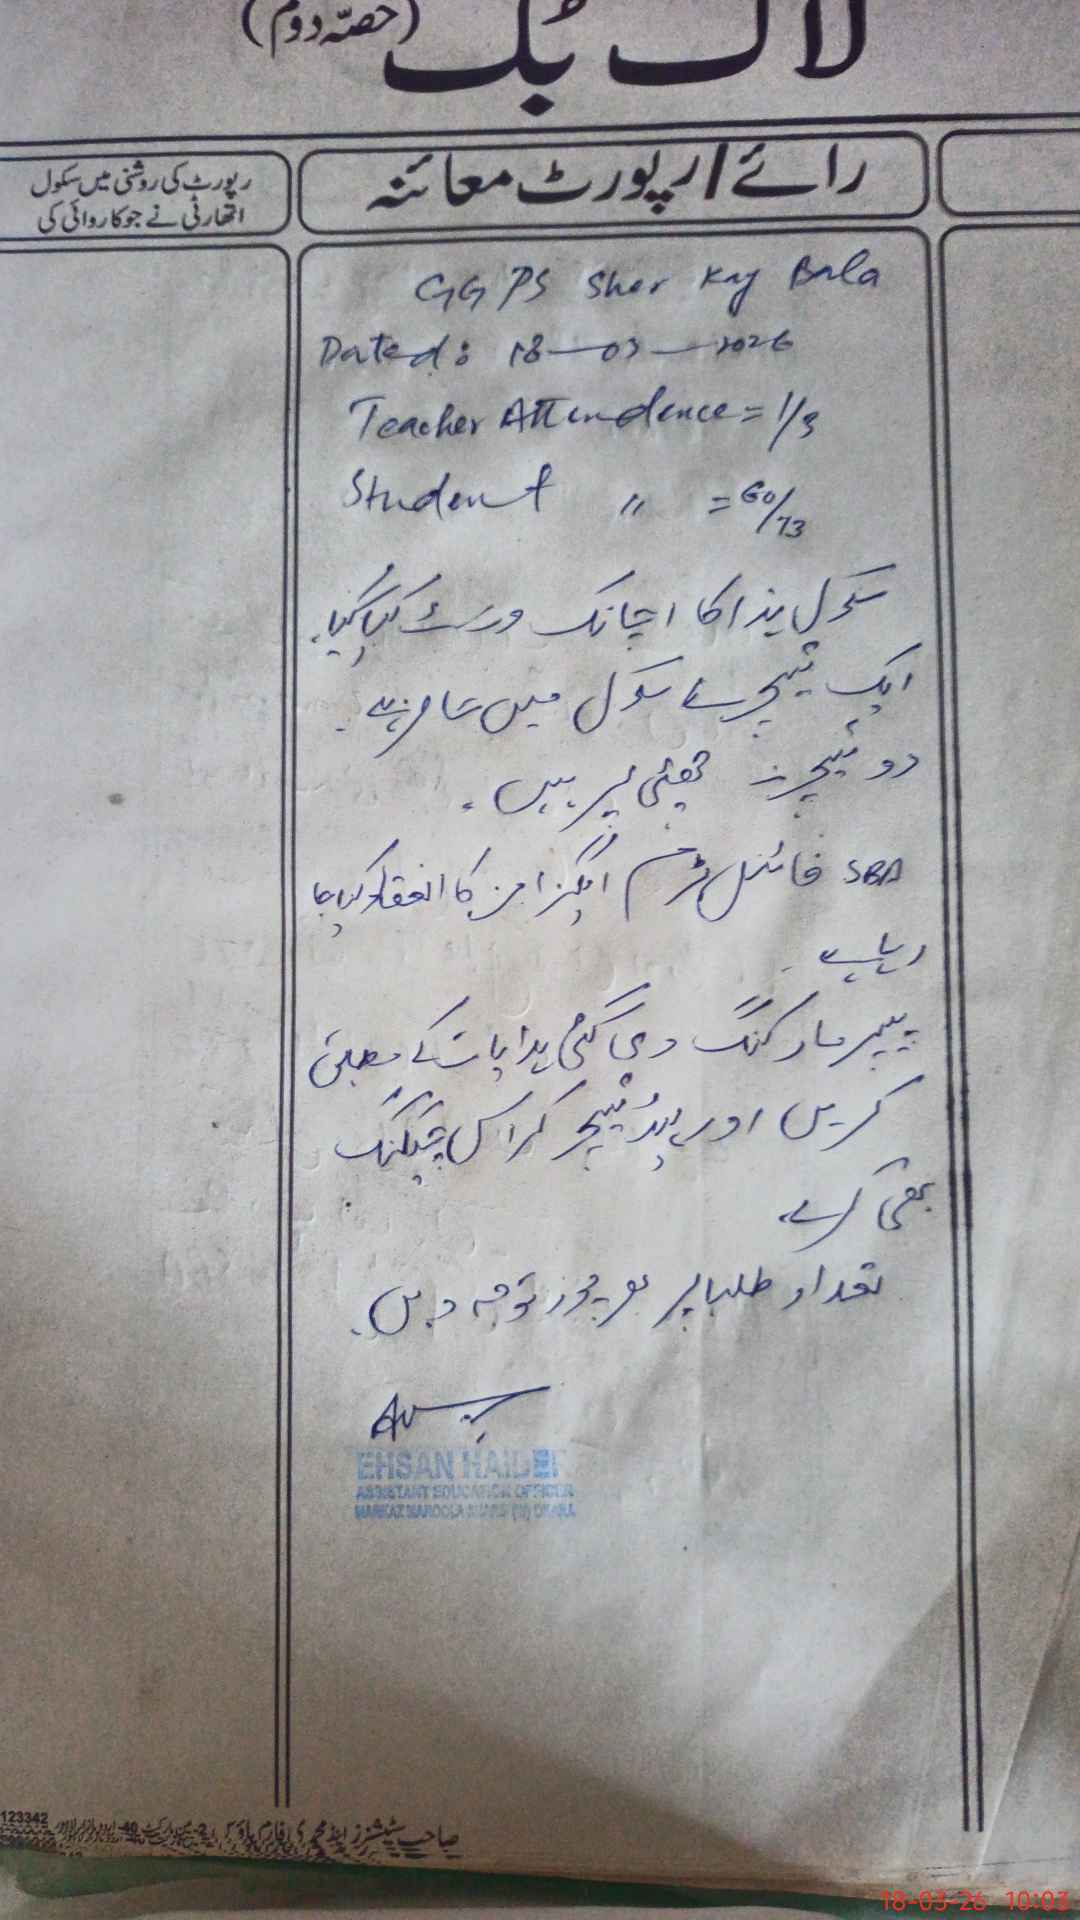 لاگ بک (حصہ دوم)
رائے / رپورٹ معائنہ
رپورٹ کی روشنی میں سکول
اتھارٹی نے جو کاروائی کی
GGPS Sher Kay Bala
Dated: 18-03-2026
Teacher Attendence = 1/3
Student " = 60/73
سکول ہذا کا اچانک وزٹ کیا گیا۔
ایک ٹیچر سکول میں حاضر ہے۔
دو ٹیچرز چھٹی پر ہیں۔
SBA فائنل ٹرم ایگزامز کا انعقاد کیا جا
رہا ہے۔
پیپر مارکنگ دی گئی ہدایات کے مطابق
کریں اور ہیڈ ٹیچر کراس چیکنگ
بھی کرے۔
تعداد طلبا پر بھرپور توجہ دیں۔
EHSAN HAIDER
ASSISTANT EDUCATION OFFICER
MARKAZ (W) OKARA
123342
18-03-26 10:03